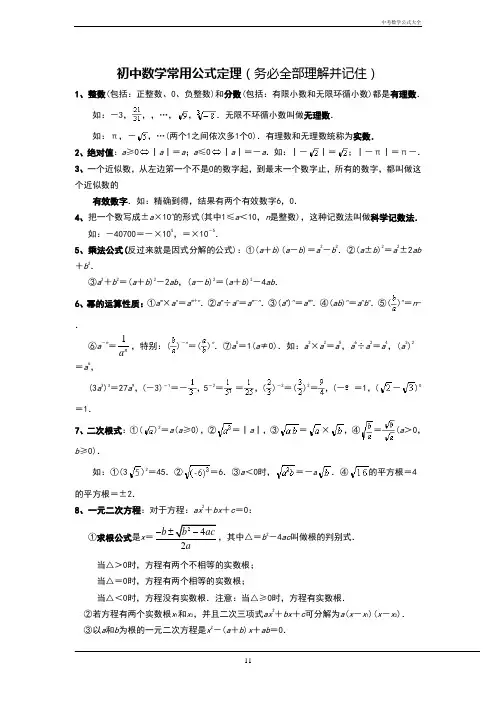 中考数学公式大全
初中数学常用公式定理(务必全部理解并记住)
1、整数(包括:正整数、0、负整数)和分数(包括:有限小数和无限环循小数)都是有理数.
如:-3,,,…,√9,∛-8.无限不环循小数叫做无理数.
如:π,-√5,…(两个1之间依次多1个0).有理数和无理数统称为实数.
2、绝对值:a≥0⇔|a|=a;a≤0⇔|a|=-a.如:|-√2|=√2;|-π|=π-.
3、一个近似数,从左边第一个不是0的数字起,到最末一个数字止,所有的数字,都叫做这
个近似数的
有效数字.如:精确到得,结果有两个有效数字6,0.
4、把一个数写成±a×10ⁿ的形式(其中1≤a<10,n是整数),这种记数法叫做科学记数法.
如:-40700=-×10⁵,=×10⁻⁵.
5、乘法公式(反过来就是因式分解的公式):①(a+b)(a-b)=a²-b².②(a±b)²=a²±2ab
+b².
③a²+b²=(a+b)²-2ab,(a-b)²=(a+b)²-4ab.
6、幂的运算性质:①aᵐ×aⁿ=aᵐ⁺ⁿ.②aᵐ÷aⁿ=aᵐ⁻ⁿ.③(aᵐ)ⁿ=aᵐⁿ.④(ab)ⁿ=aⁿbⁿ.⑤(b/a)ⁿ=n-
.
⑥a⁻ⁿ=1/aⁿ,特别:(b/a)⁻ⁿ=(a/b)ⁿ.⑦a⁰=1(a≠0).如:a³×a²=a⁵,a⁶÷a²=a⁴,(a³)²
=a⁶,
(3a³)³=27a⁹,(-3)⁻¹=-1/3,5⁻²=1/5²=1/25,(2/3)⁻²=(3/2)²=9/4,(-º=1,(√2-√3)⁰
=1.
7、二次根式:①(√a)²=a(a≥0),②√a²=|a|,③√ab=√a×√b,④√b/a=√b/√a(a>0,
b≥0).
如:①(3√5)²=45.②√(-6)²=6.③a<0时,√a²b=-a√b.④√16的平方根=4
的平方根=±2.
8、一元二次方程:对于方程:ax²+bx+c=0:
①求根公式是x=(-b±√b²-4ac)/2a,其中△=b²-4ac叫做根的判别式.
当△>0时,方程有两个不相等的实数根;
当△=0时,方程有两个相等的实数根;
当△<0时,方程没有实数根.注意:当△≥0时,方程有实数根.
②若方程有两个实数根x₁和x₂,并且二次三项式ax²+bx+c可分解为a(x-x₁)(x-x₂).
③以a和b为根的一元二次方程是x²-(a+b)x+ab=0.
11